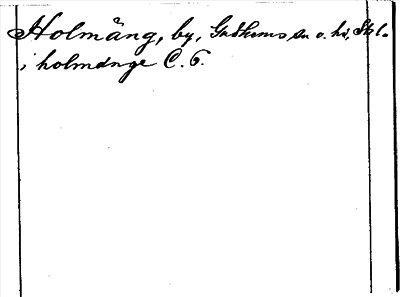 Holmäng, by, Gudhems sn o. hd, Skl.
i holmænge C. 6.